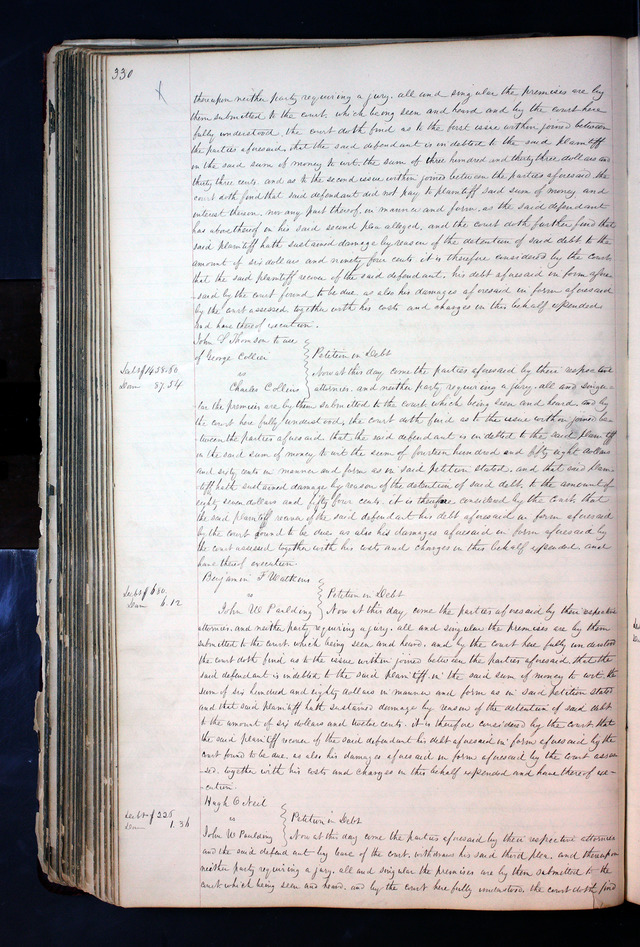 330
thereupon neither party requiring a jury. all and singular the premises are by
them submitted to the court. which being seen and heard and by the court here
fully understood, the court doth find as to the first issue within joined between
the parties aforesaid, that the said defendant is indebted to the said plaintiff
in the said sum of money to wit. the sum of three hundred and thirty three dollars and
thirty three cents. and as to the second issue within joined between the parties aforesaid the
court doth find that said defendant did not pay to plaintiff said sum of money and
interest thereon, nor any part thereof, in manner and form, as the said defendant
has above thereof in his said second plea alleged, and the court doth further find that
said plaintiff hath sustained damage by reason of the detention of said debt to the
amount of six dollars and ninety four cents it is therefore considered by the court
that the said plaintiff recover of the said defendant. his debt aforesaid in form afore
-said by the court found to be due. as also his damages aforesaid in form aforesaid
by the court assessed together with his costs and charges in this behalf expended
and have thereof execution.
John S Thomson to use
of George Collier
vs
Charles Collins
Petition in Debt
Debt $1458.60
Dam 87.54
Now at this day come the parties aforesaid by their respective
attornies. and neither party requiring a jury. all and singu-
lar the premises are by them submitted to the court which being seen and heard. and by
the court here fully understood, the court doth find as to the issue within joined be-
tween the parties aforesaid, that the said defendant is indebted to the said plaintiff
in the said sum of money to wit the sum of fourteen hundred and fifty eight dollars
and sixty cents in manner and form as in said petition stated. and that said plain-
tiff hath sustained damage by reason of the detention of said debt, to the amount of
eighty seven dollars and fifty four cents. it is therefore considered by the court that
the said plaintiff recover of the said defendant his debt aforesaid in form aforesaid
by the court found to be due, as also his damages aforesaid in form aforesaid by
the court assessed together with his costs and charges in this behalf expended. and
have thereof execution.
Benjamin F Watkins
vs
John W Paulding
Petition in Debt
Debt $680.
Dam 6.12
Now at this day, come the parties aforesaid by their respective
attornies. and neither party requiring a jury. all and singular the premises are by them
submitted to the court. which being seen and heard. and by the court here fully understood
the court doth find as to the issue within joined between the parties aforesaid, that the
said defendant is indebted to the said plaintiff in the said sum of money to wit. the
sum of six hundred and eighty dollars in manner and form as in said petition stated
and that said plaintiff hath sustained damage by reason of the detention of said debt
to the amount of six dollars and twelve cents. it is therefore considered by the court that
the said plaintiff recover of the said defendant his debt aforesaid in form aforesaid by the
court found to be due. as also his damages aforesaid in form aforesaid by the court asses
sed. together with his costs and charges in this behalf expended and have thereof ex-
-cution.
Hugh O Neil
vs
John W Paulding
Petition in Debt
Debt $226
Dam 1.36
Now at this day come the parties aforesaid by their respective attornies
and the said defendant by leave of the court. withdraws his said third plea. and thereupon
neither party requiring a jury. all and singular the premises are by them submitted to the
court which being seen and heard. and by the court here fully understood. the court doth find